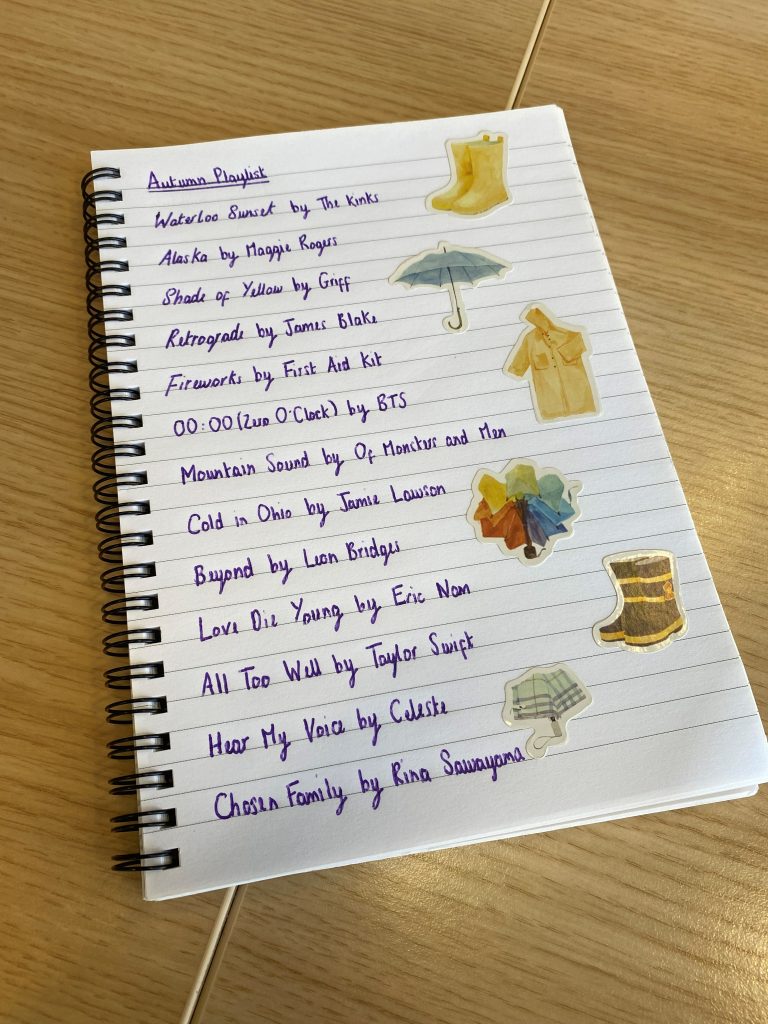 Autumn Playlist
Waterloo Sunset by The Kinks
Alaska by Maggie Rogers
Shade of Yellow by Griff
Retrograde by James Blake
Fireworks by First Aid Kit
00:00 (Zero O'Clock) by BTS
Mountain Sound by Of Monsters and Men
Cold in Ohio by Jamie Lawson
Beyond by Leon Bridges
Love Die Young by Eric Nam
All Too Well by Taylor Swift
Hear My Voice by Celeste
Chosen Family by Rina Sawayama